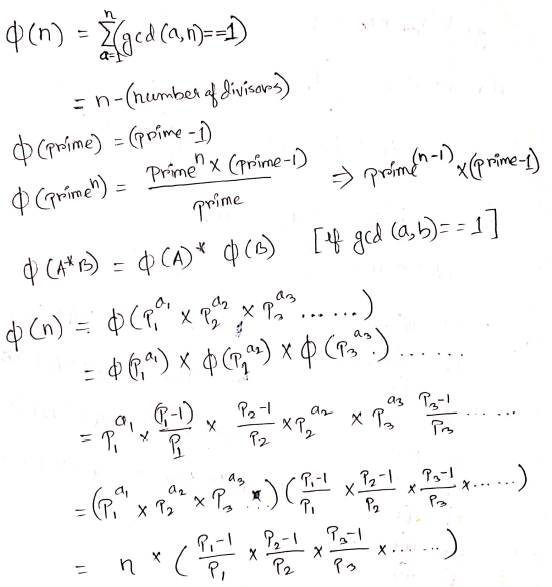 ϕ(n) = n∑a=1 (gcd(a,n)==1)
= n-(number of divisors)
ϕ(prime) = (prime-1)
ϕ(primeⁿ) = primeⁿ × (prime-1) / prime ⇒ prime^(n-1) × (prime-1)
ϕ(A*B) = ϕ(A) * ϕ(B) [if gcd(a,b)==1]
ϕ(n) = ϕ(P₁^a₁ × P₂^a₂ × P₃^a₃ ......)
= ϕ(P₁^a₁) × ϕ(P₂^a₂) × ϕ(P₃^a₃) ......
= P₁^a₁ × (P₁-1)/P₁ × P₂-1/P₂ × P₂^a₂ × P₃^a₃ P₃-1/P₃ ......
= (P₁^a₁ × P₂^a₂ × P₃^a₃ ) (P₁-1/P₁ × P₂-1/P₂ × P₃-1/P₃ × ......)
= n * (P₁-1/P₁ × P₂-1/P₂ × P₃-1/P₃ × ......)